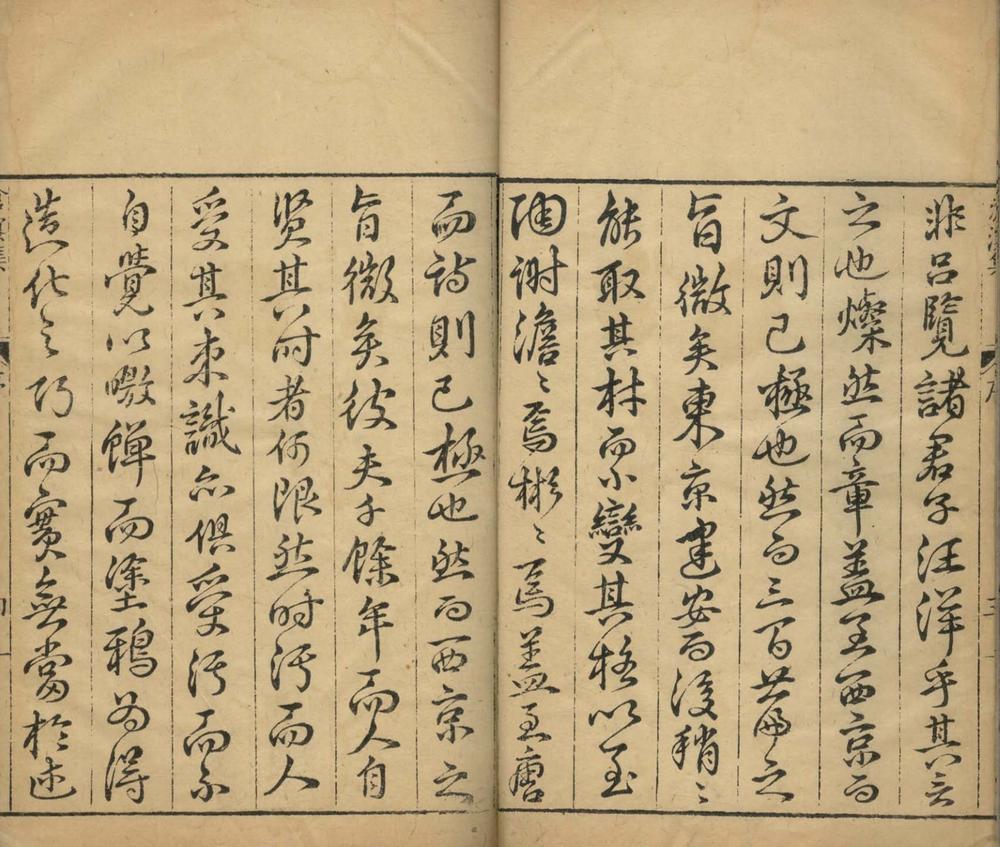 非呂覽諸君子汪洋乎其言
之也燦然而章蓋至西京而
文則已極也然而三百世篇之
旨微矣東京建安而後稍〻
能取其材而小變其格以至
陶謝澹〻焉彬〻焉蓋至唐
而詩則已極也然而西京之
旨微矣彼夫千餘年而人自
賢其時者何限然時污而人
受其束識亦俱受污而不
自覺以嗷蟬而塗鴉為得
造化之巧而實無當於述